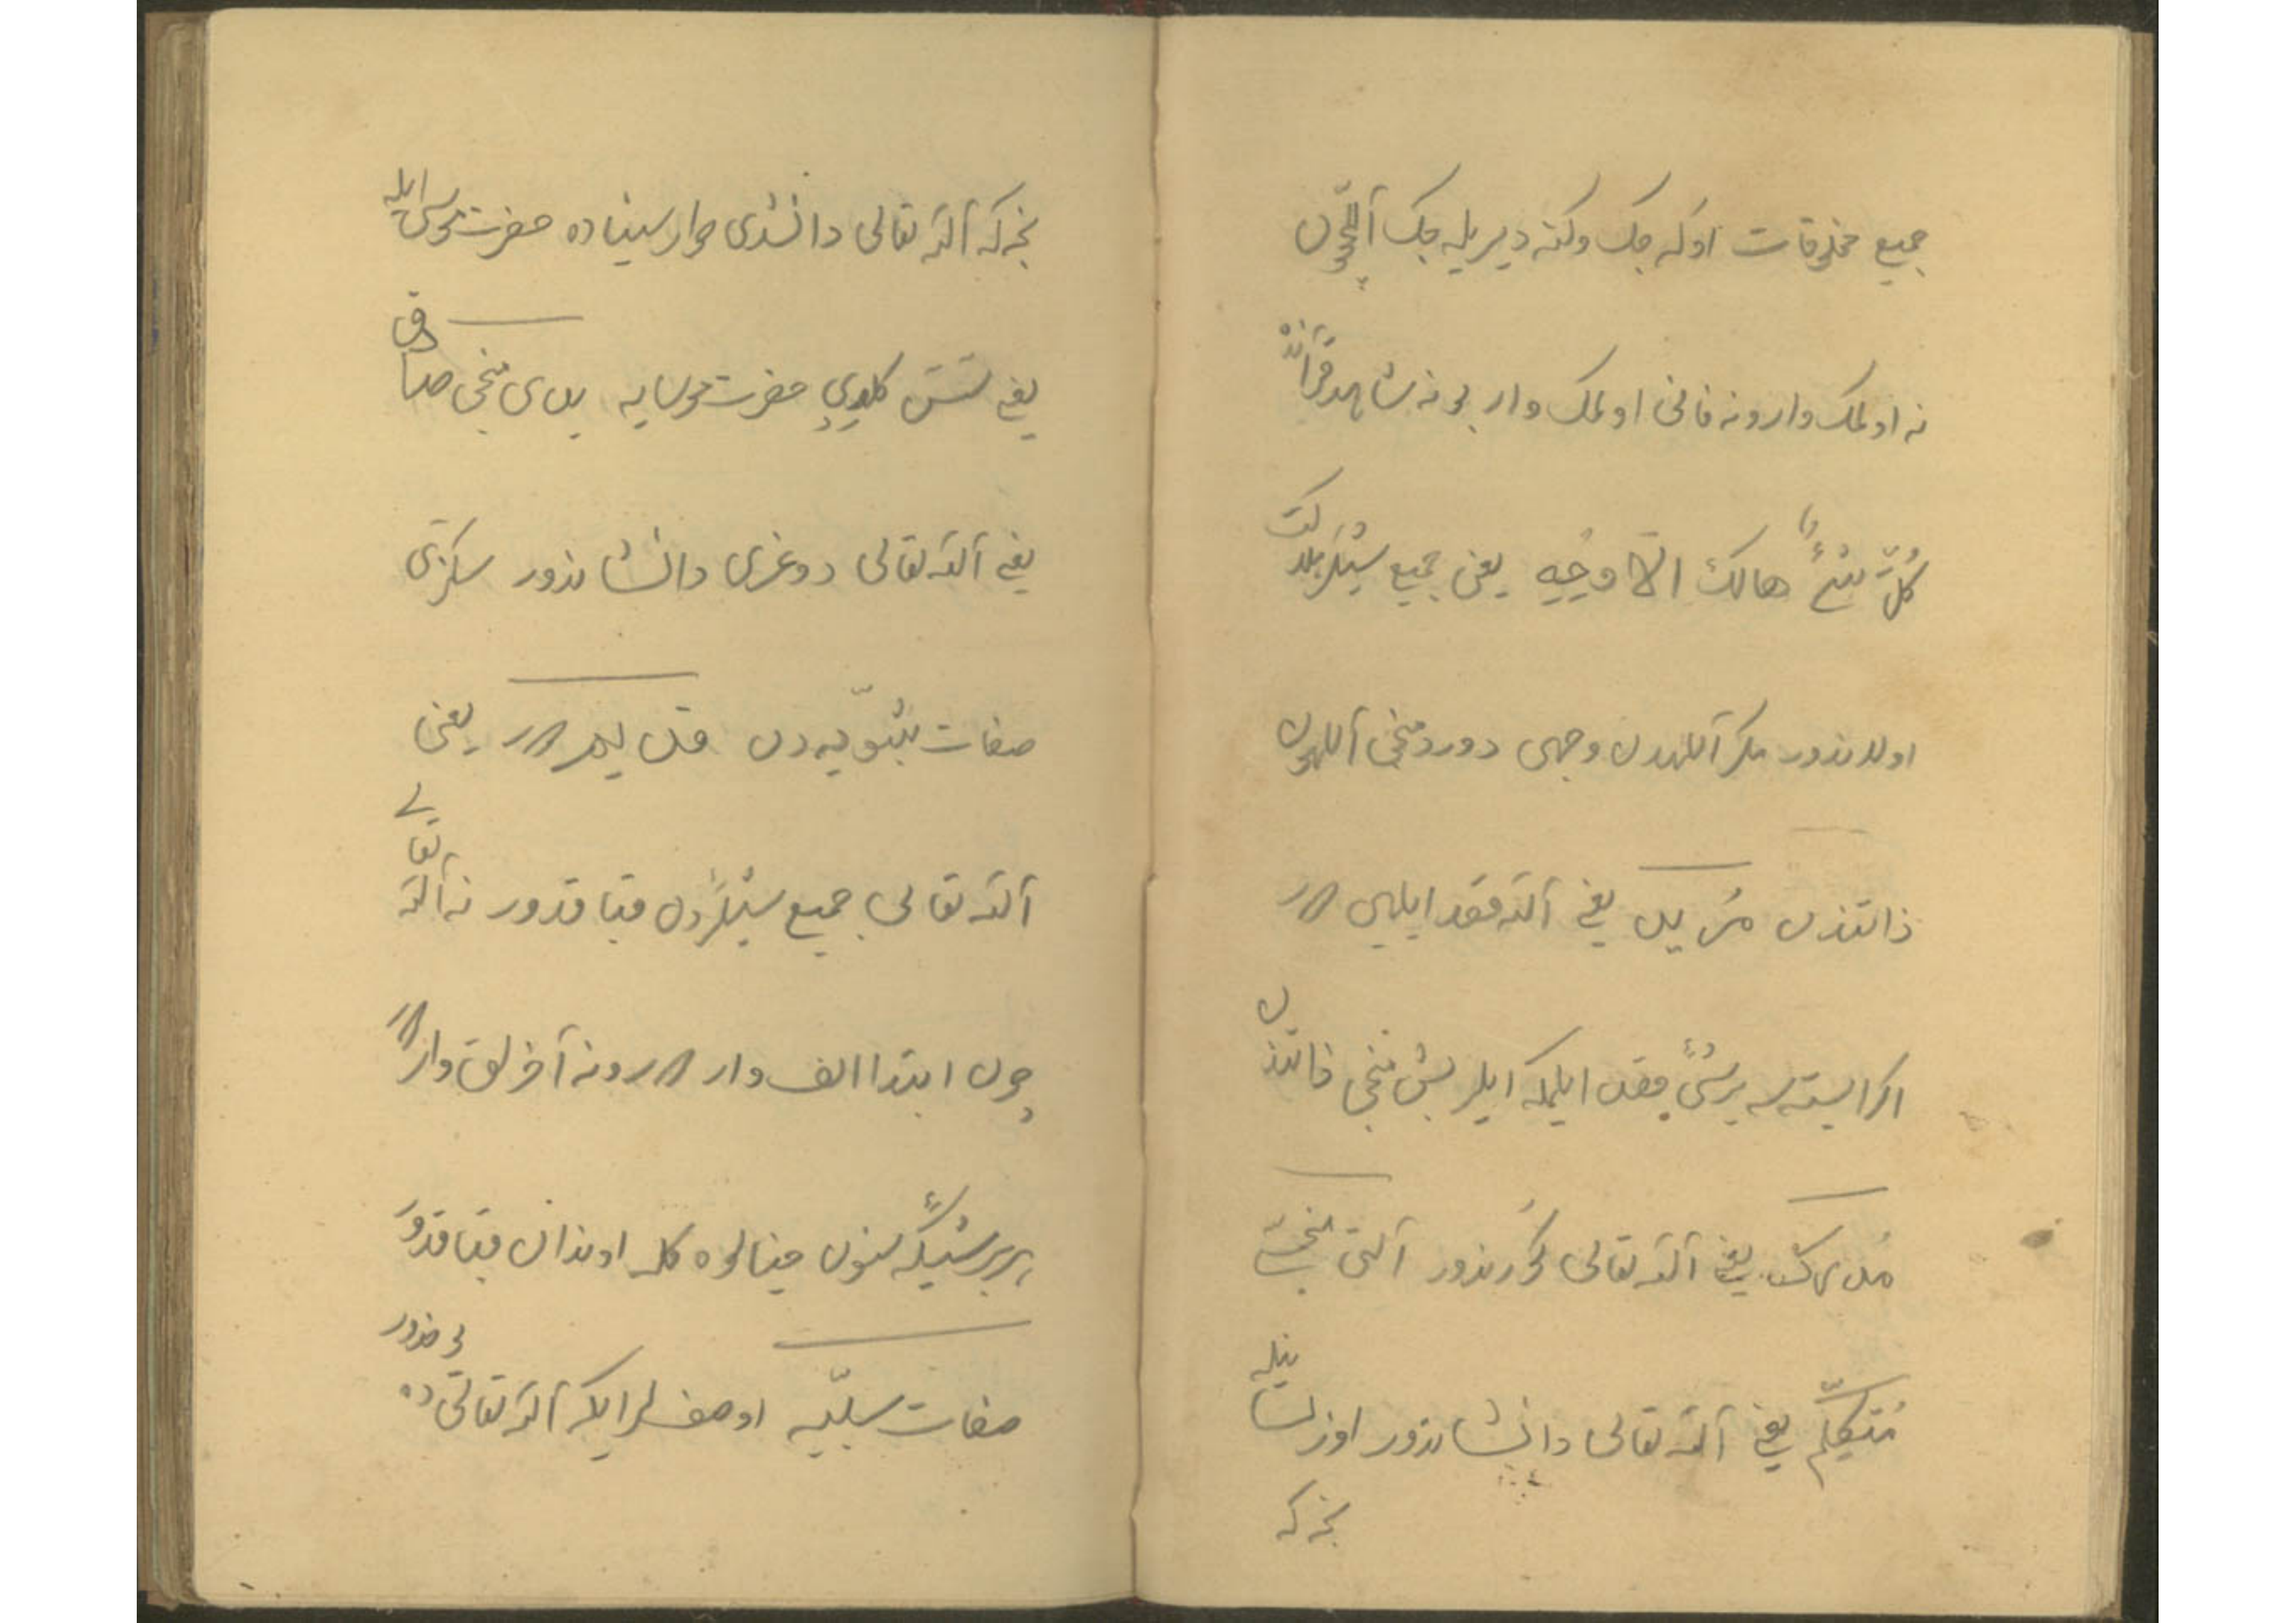 جمیع مخلوقات اوله جک وکنه دیریله جک آللّهون
نه اولمک وار ونه فانی اولمک وار بونه شاهد قرآنده
كُلّ شَيْءٍ هالك الّا وجهِه یعنی جمیع شیئلر هلاکت
اولاندور مکر آللهدن وجهی دوردمنجی آللهون
ذاتندن مُریل یعنی آلله قصد ایلییر
اکر ایسته سه بر شیٔ قصد ایلمکه ایلر بش منجی ذاتندن
مُدرک یعنی آلله تعالی کورندور آلتی منجی
مُتکلّم یعنی آلله تعالی دانشاندور اوز لسانیله
نجه که
نجه که آلله تعالی دانشدی طوار سیناده حضرت موسی ایله
یعنی سَسَ کلدی حضرت موسایه یدی منجی صادق
یعنی آلله تعالی دوغری دانشاندور سکزمنجی
صفات ثبوتیّه دن قدیم در یعنی
آلله تعالی جمیع شیئلردن قباقدور نه آلله تعالی
چون ابتدالق وار در ونه آخرلق وار
هر بر شیئکه سنون خیالوه کله اوندان قباقدور
صفات سلبیّه او صفتلر ایکه آلله تعالی ده یوخدور